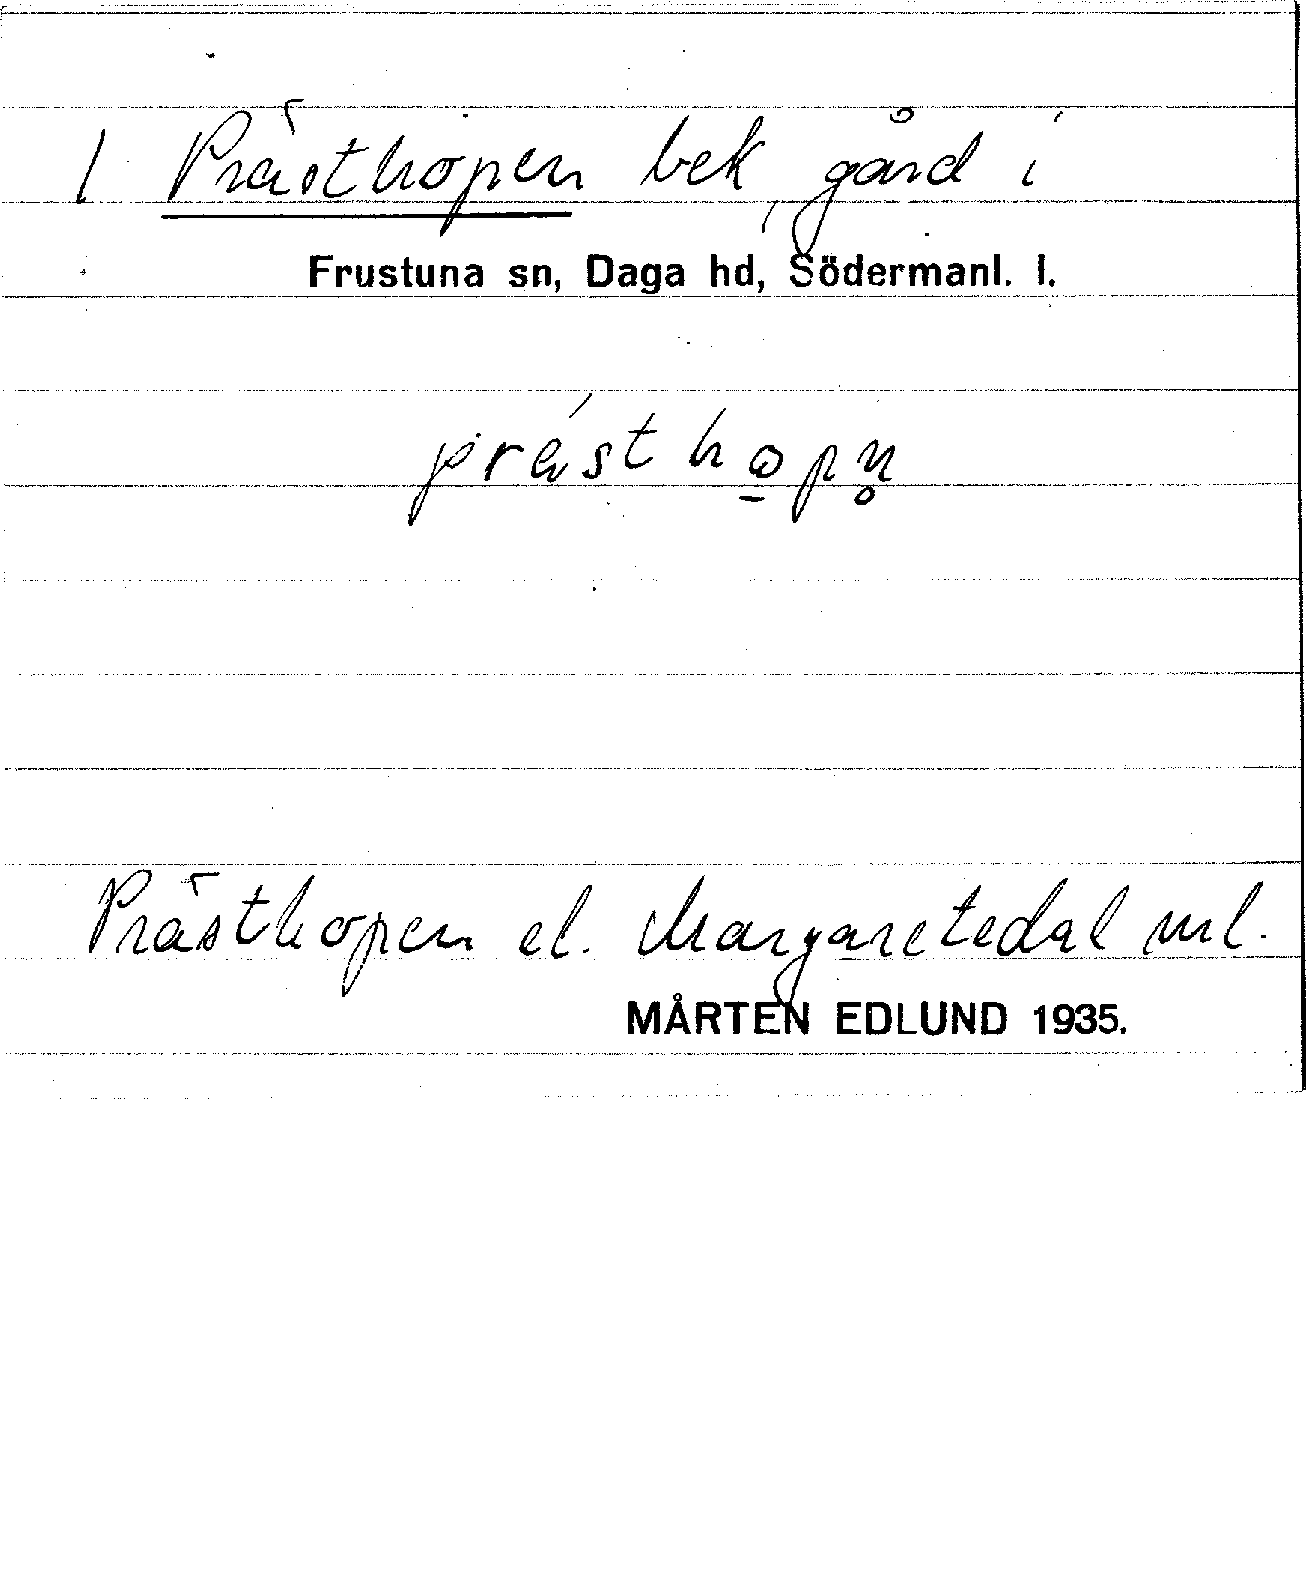 1 Prästhopen bek, gård i
Frustuna sn, Daga hd, Södermanl. l.
prä́sthω̱pn̥
Prästhopen el. Margaretedal ml.
MÅRTEN EDLUND 1935.